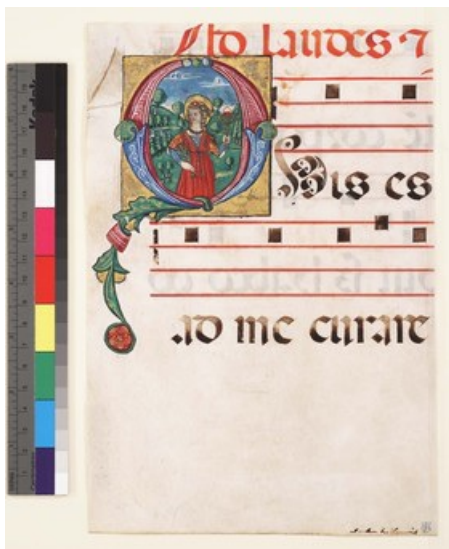 Ad laudes ⁊
QUis es
ad me curare